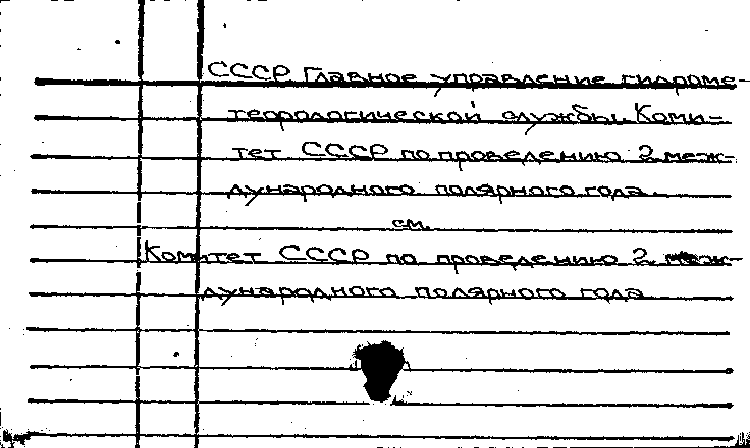 СССР Главное управление гидроме-
теорологической службы. Коми-
тет СССР по проведению 2 меж-
дународного полярного года.
см.
Комитет СССР по проведению 2 меж-
дународного полярного года